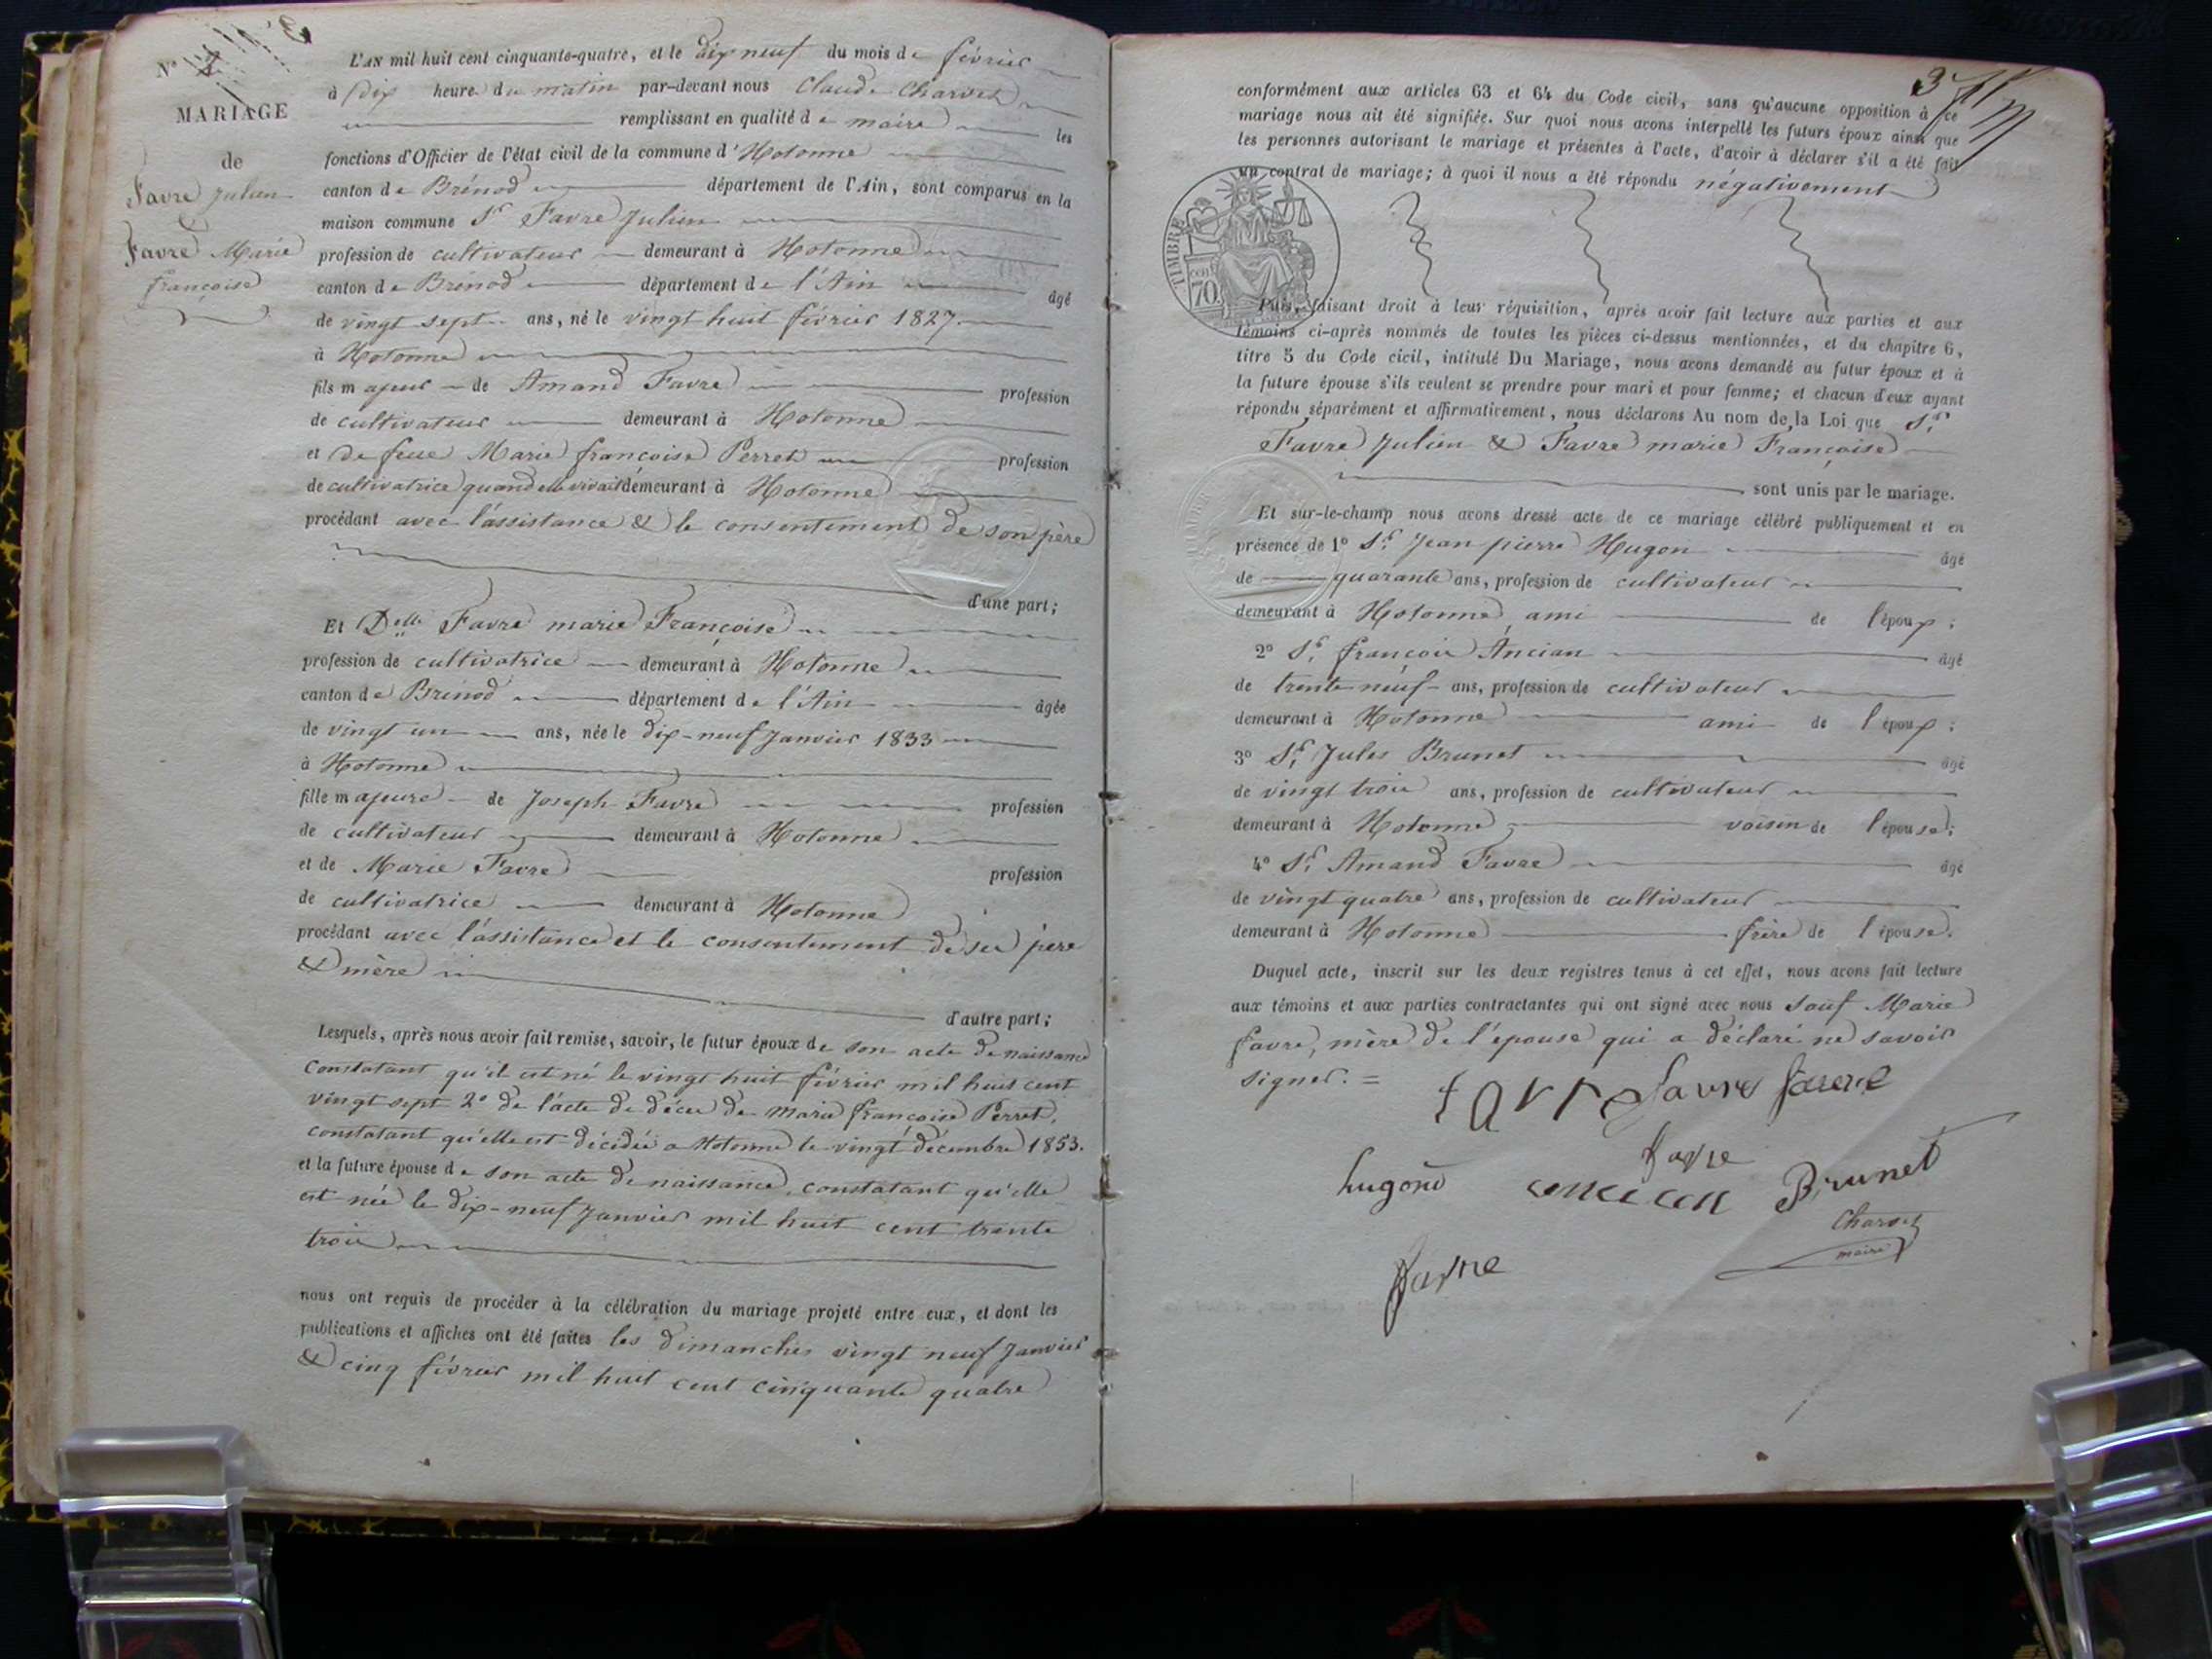 N° 4
MARIAGE
de
Favre Julien
&
Favre Marie
françoise
L'AN mil huit cent cinquante-quatre, et le dix neuf du mois de février
à dix heure du matin par-devant nous Claude Charvet
remplissant en qualité de maire les
fonctions d'Officier de l'état civil de la commune d'Hotonne
canton de Brénod département de l'Ain, sont comparus en la
maison commune Sr Favre Julien
profession de cultivateur demeurant à Hotonne
canton de Brénod département de l'Ain âgé
de vingt sept ans, né le vingt huit février 1827.
à Hotonne
fils majeur de Amand Favre profession
de cultivateur demeurant à Hotonne
et De feue Marie françoise Perret profession
de cultivatrice quand elle vivait demeurant à Hotonne
procédant avec l'assistance & le consentement de son père
d'une part;
Et Delle Favre marie Françoise
profession de cultivatrice demeurant à Hotonne
canton de Brénod département de l'Ain âgée
de vingt un ans, née le dix-neuf Janvier 1833
à Hotonne
fille majeure de Joseph Favre profession
de cultivateur demeurant à Hotonne
et de Marie Favre profession
de cultivatrice demeurant à Hotonne
procédant avec l'assistance et le consentement de ses père
& mère
d'autre part;
Lesquels, après nous avoir fait remise, savoir, le futur époux de son acte de naissance
constatant qu'il est né le vingt huit février mil huit cent
vingt sept 2° de l'acte de décès de Marie françoise Perret,
constatant qu'elle est décédée a Hotonne le vingt décembre 1853.
et la future épouse de son acte de naissance, constatant qu'elle
est née le dix-neuf Janvier mil huit cent trente
trois
nous ont requis de procéder à la célébration du mariage projeté entre eux, et dont les
publications et affiches ont été faites les dimanches vingt neuf Janvier
& cinq février mil huit cent cinquante quatre
3
conformément aux articles 63 et 64 du Code civil, sans qu'aucune opposition à ce
mariage nous ait été signifiée. Sur quoi nous avons interpellé les futurs époux ainsi que
les personnes autorisant le mariage et présentes à l'acte, d'avoir à déclarer s'il a été fait
un contrat de mariage; à quoi il nous a été répondu négativement
TIMBRE
70
Puis, faisant droit à leur réquisition, après avoir fait lecture aux parties et aux
témoins ci-après nommés de toutes les pièces ci-dessus mentionnées, et du chapitre 6,
titre 5 du Code civil, intitulé Du Mariage, nous avons demandé au futur époux et à
la future épouse s'ils veulent se prendre pour mari et pour femme; et chacun d'eux ayant
répondu séparément et affirmativement, nous déclarons Au nom de la Loi que Sr
Favre Julien & Favre marie Françoise
sont unis par le mariage.
Et sur-le-champ nous avons dressé acte de ce mariage célébré publiquement et en
présence de 1° Sr Jean pierre Hugon âgé
de quarante ans, profession de cultivateur
demeurant à Hotonne, ami de l'époux;
2° Sr françois Ancian âgé
de trente neuf ans, profession de cultivateur
demeurant à Hotonne ami de l'époux;
3° Sr Jules Brunet âgé
de vingt trois ans, profession de cultivateur
demeurant à Hotonne voisin de l'épouse;
4° Sr Amand Favre âgé
de vingt quatre ans, profession de cultivateur
demeurant à Hotonne frère de l'épouse.
Duquel acte, inscrit sur les deux registres tenus à cet effet, nous avons fait lecture
aux témoins et aux parties contractantes qui ont signé avec nous sauf Marie
favre, mère de l'épouse qui a déclaré ne savoir
signer. =
favre favre favre
favre
hugon ancian Brunet
Charvet
maire
favre